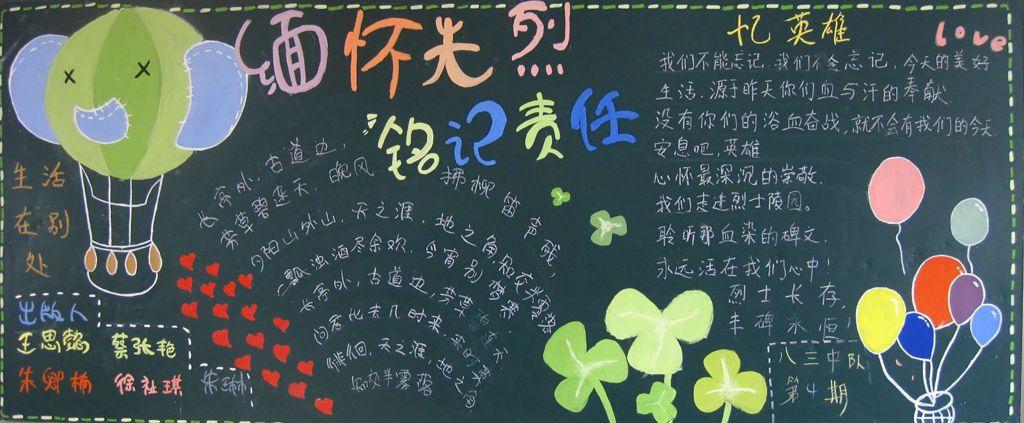 缅怀先烈
铭记责任
忆英雄
love
我们不能忘记,我们不会忘记,今天的美好
生活,源于昨天你们血与汗的奉献
没有你们的浴血奋战,就不会有我们的今天
安息吧,英雄
心怀最深沉的崇敬,
我们走进烈士陵园。
聆听那血染的碑文,
永远活在我们心中!
烈士长存,
丰碑永恒!
八三中队
第4期
长亭外,古道边,
芳草碧连天,晚风拂柳笛声残,
夕阳山外山,天之涯,地之角,知交半零落
一瓢浊酒尽余欢,今宵别梦寒
长亭外,古道边,芳草碧连天
问君此去几时来,来时莫
徘徊,天之涯,地之角
知交半零落
生活
在别
处
出版人
王思懿
蔡张艳
朱卿楠
徐祉琪
朱琳